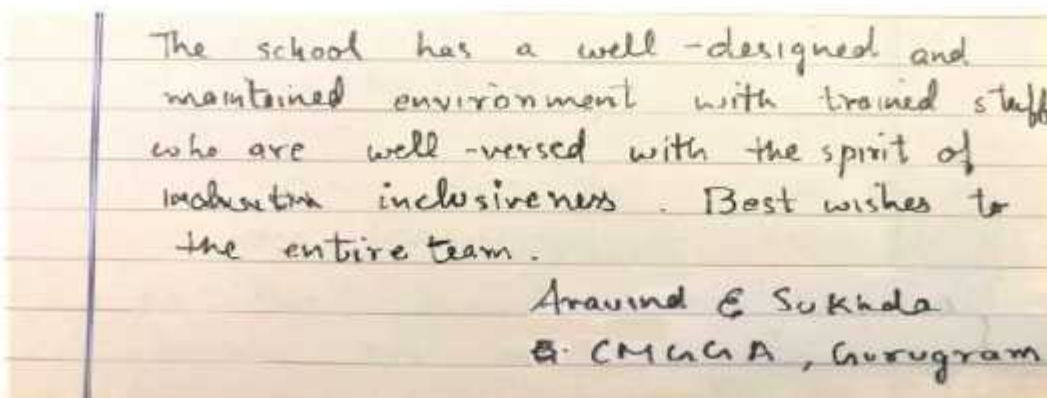 The school has a well-designed and
maintained environment with trained staff
who are well-versed with the spirit of
inclusiveness. Best wishes to
the entire team.
Aravind & Sukhda
CMGGA, Gurugram